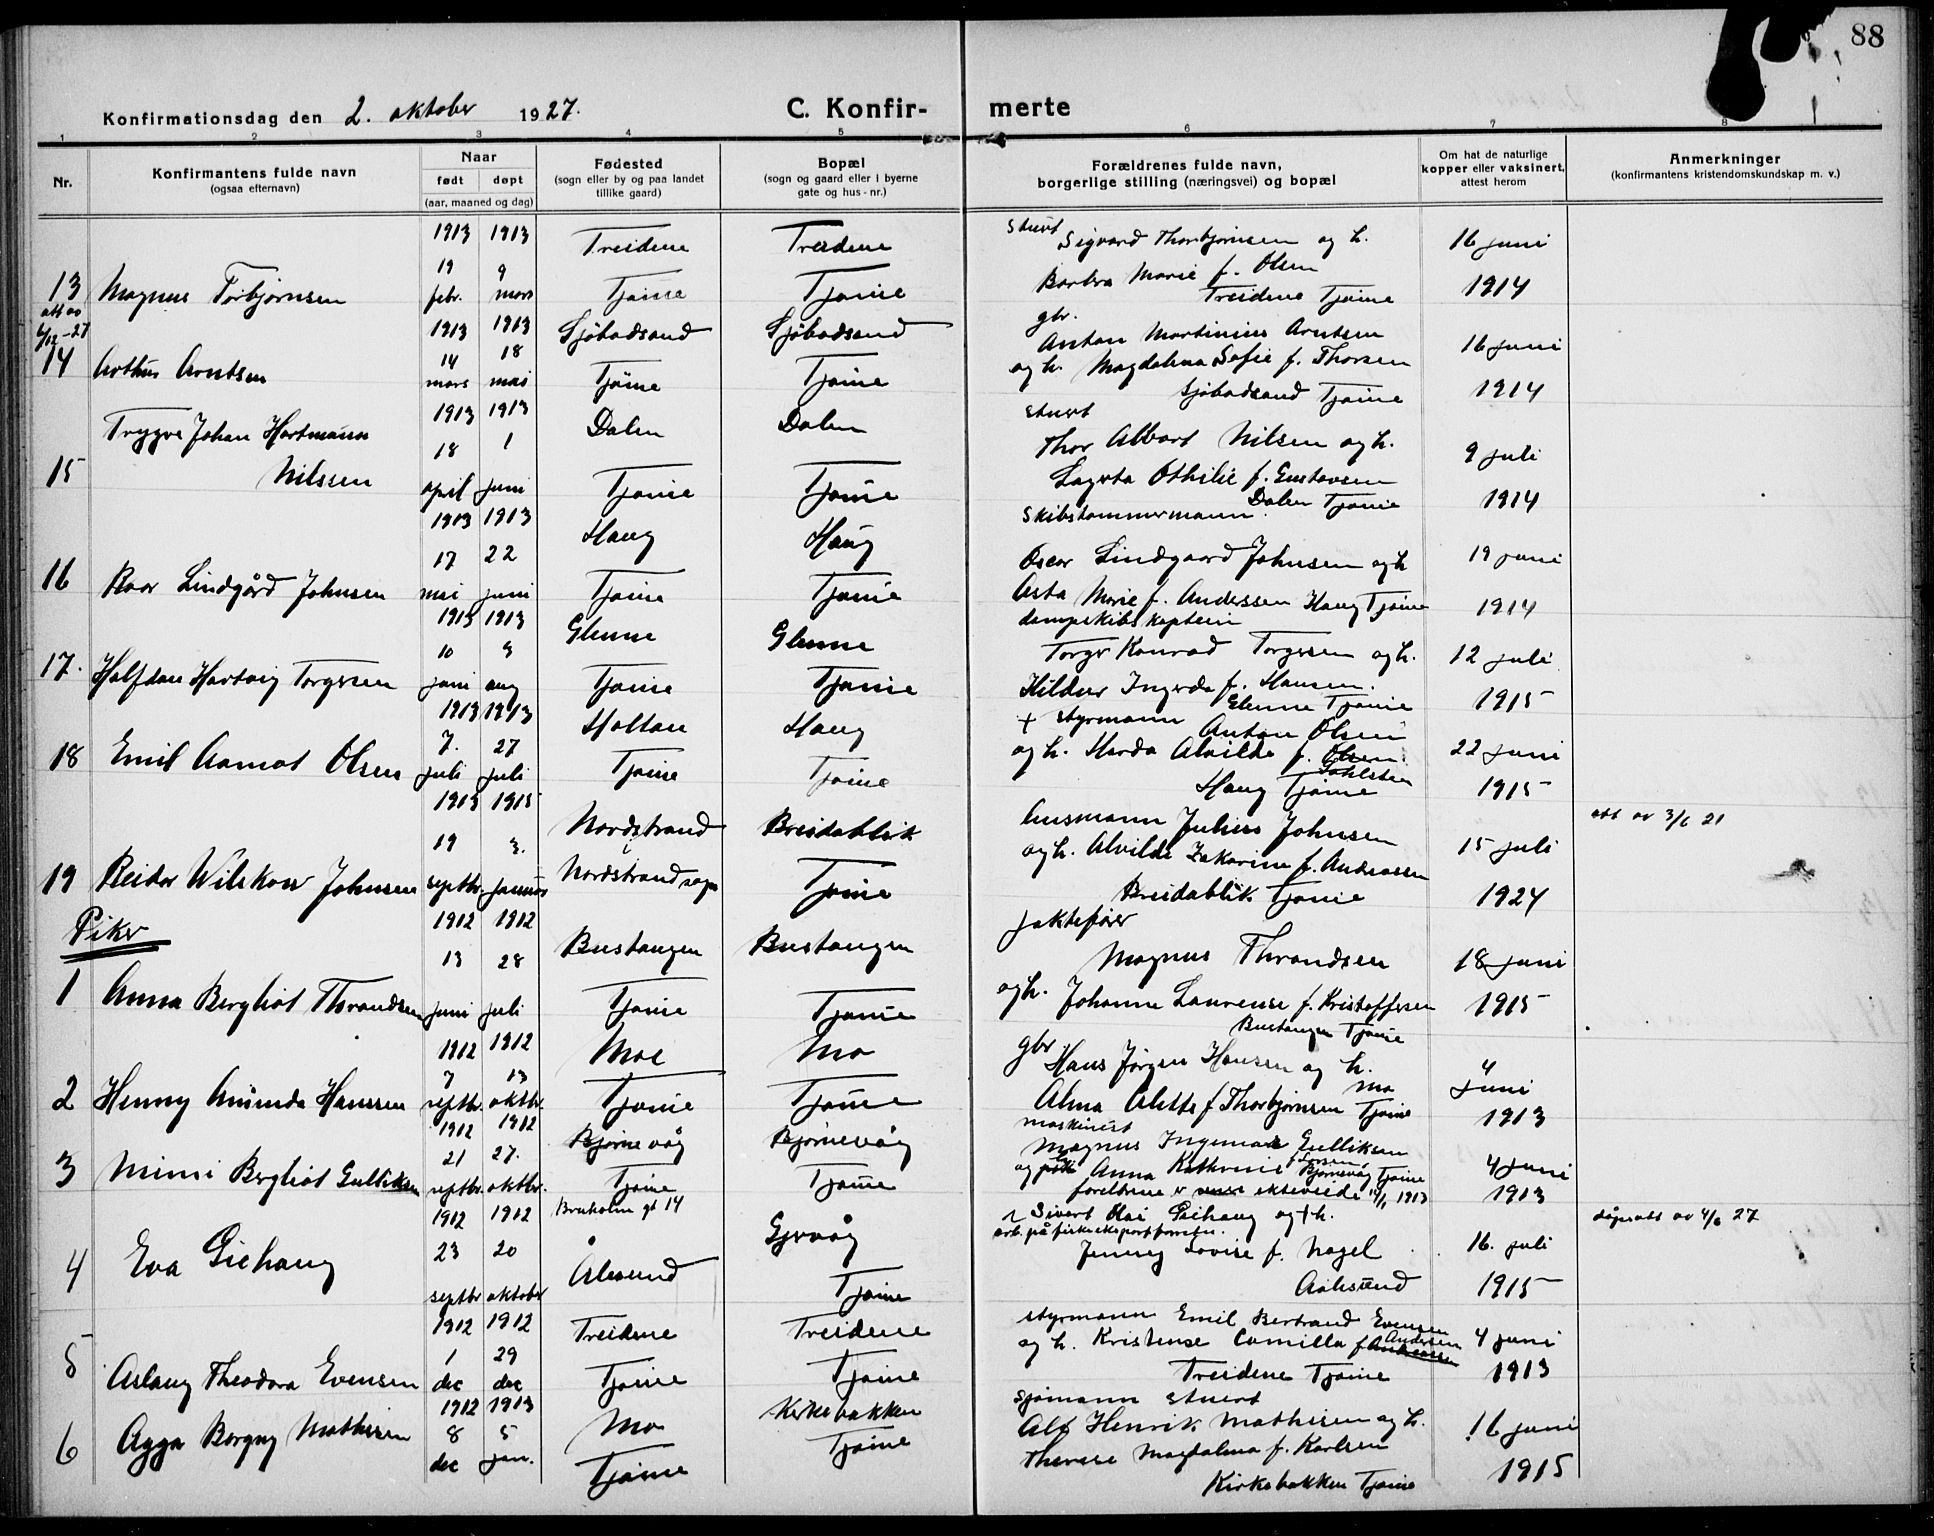 88
Konfirmationsdag den 2. oktober 1927.
C. Konfirmerte
1 2 3 4 5 6 7 8
Nr.
Konfirmantens fulde navn
(ogsaa efternavn)
Naar
født døpt
(aar, maaned og dag)
Fødested
(sogn eller by og paa landet
tillike gaard)
Bopæl
(sogn og gaard eller i byerne
gate og hus-nr.)
Forældrenes fulde navn,
borgerlige stilling (næringsvei) og bopæl
Om hat de naturlige
kopper eller vaksinert,
attest herom
Anmerkninger
(konfirmantens kristendomskundskap m. v.)
1913 1913 Treidene Treidene stuert Sigvard Thorbjørnsen og h. 16 juni
13 Magnus Torbjørnsen 19 febr. 9 mars Tjøme Tjøme Barbra Marie f. Olsen 1914
Treidene Tjøme
6/12-27
1913 1913 Sjøbodsand Sjøbodsand gbr. Anton Martinius Arntsen 16 juni
14 Arthur Arntsen 14 mars 18 mai Tjøme Tjøme og h. Magdalena Sofie f. Thorsen 1914
Sjøbodsand Tjøme
1913 1913 Dalen Dalen stuert
15 Trygve Johan Hartmann 18 1 Thor Albert Nilsen og h. 9 juli
Nilssen april juni Tjøme Tjøme Lagerta Othilie f. Gustavsen 1914
Dalen Tjøme
1913 1913 Haug Haug skibstømmermann
16 Roar Lindgård Johnsen 17 mai 22 juni Tjøme Tjøme Oscar Lindgaard Johnsen og h 19 juni
Asta Marie f. Anderssen Haug Tjøme 1914
1913 1913 Glenne Glenne dampskibskaptein
17. Halfdan Hartvig Torgersen 10 juni 3 aug Tjøme Tjøme Torger Konrad Torgersen og h. 12 juli
Hildur Ingerda f. Hansen. 1915
Glenne Tjøme
1913 1913 Holtan Haug + styrmann Anton Olsen
18 Emil Aamot Olsen 7. juli 27 juli Tjøme Tjøme og h. Harda Alvilde f. Olsen 22 juni
Dahlsten
Haug Tjøme 1915
1913 1915 Nordstrand Breidablik husmann Julius Johnsen att av 3/6 21
19 Reidar Wilskow Johnsen 19 septbr. 3. januar Nordstrand sogn Tjøme og h. Alvilde Zakarine f. Andreassen 15 juli
Breidablik Tjøme 1924
Piker
1912 1912 Bustangen Bustangen jaktefører
1 Anna Bergliot Thrandsen 13 juni 28 juli Tjøme Tjøme Magnus Thrandsen 18 juni
og h. Johanne Laurense f. Kristoffersen 1915
Bustangen Tjøme
1912 1912 Moe Mo gbr. Hans Jørgen Hansen og h.
2 Henny Amunda Hanssen 7 septbr. 13 oktbr. Tjøme Tjøme Alma Alette f Thorbjørnsen Mo Tjøme 4 juni 1913
1912 1912 Bjørnevåg Bjørnevåg maskinist
3 Mimi Bergliot Gulliksen 21 septbr. 27. oktbr. Tjøme Tjøme Magnus Ingemar Gulliksen
og Anna Kathrine Bjørnevåg Tjøme 4 juni
foreldrene er ekteviede 1913 1913
1912 1912 Bruholm gt 14 Gjervåg Sivert Olai Giehaug og + h. dåpsatt av 4/6 27
4 Eva Giehaug 23 septbr 20 oktober Ålesund Tjøme Jenny Lovise f. Nagel 16. juli
Aalesund 1915
1912 1912 Treidene Treidene styrmann Emil Bertrand Evensen
5 Aslaug Theodora Evensen 1 dec 29 dec Tjøme Tjøme og h. Kristense Camilla f Andersen 4 juni
Treidene Tjøme 1913
1912 1913 Mo Kirkebakken sjømann stuert
6 Agga Borgny Mathisen 8 dec 5 jan. Tjøme Tjøme Alf Henrik Mathisen og h. 16 juni
Therese Magdalena f. Karlsen 1915
Kirkebakken Tjøme